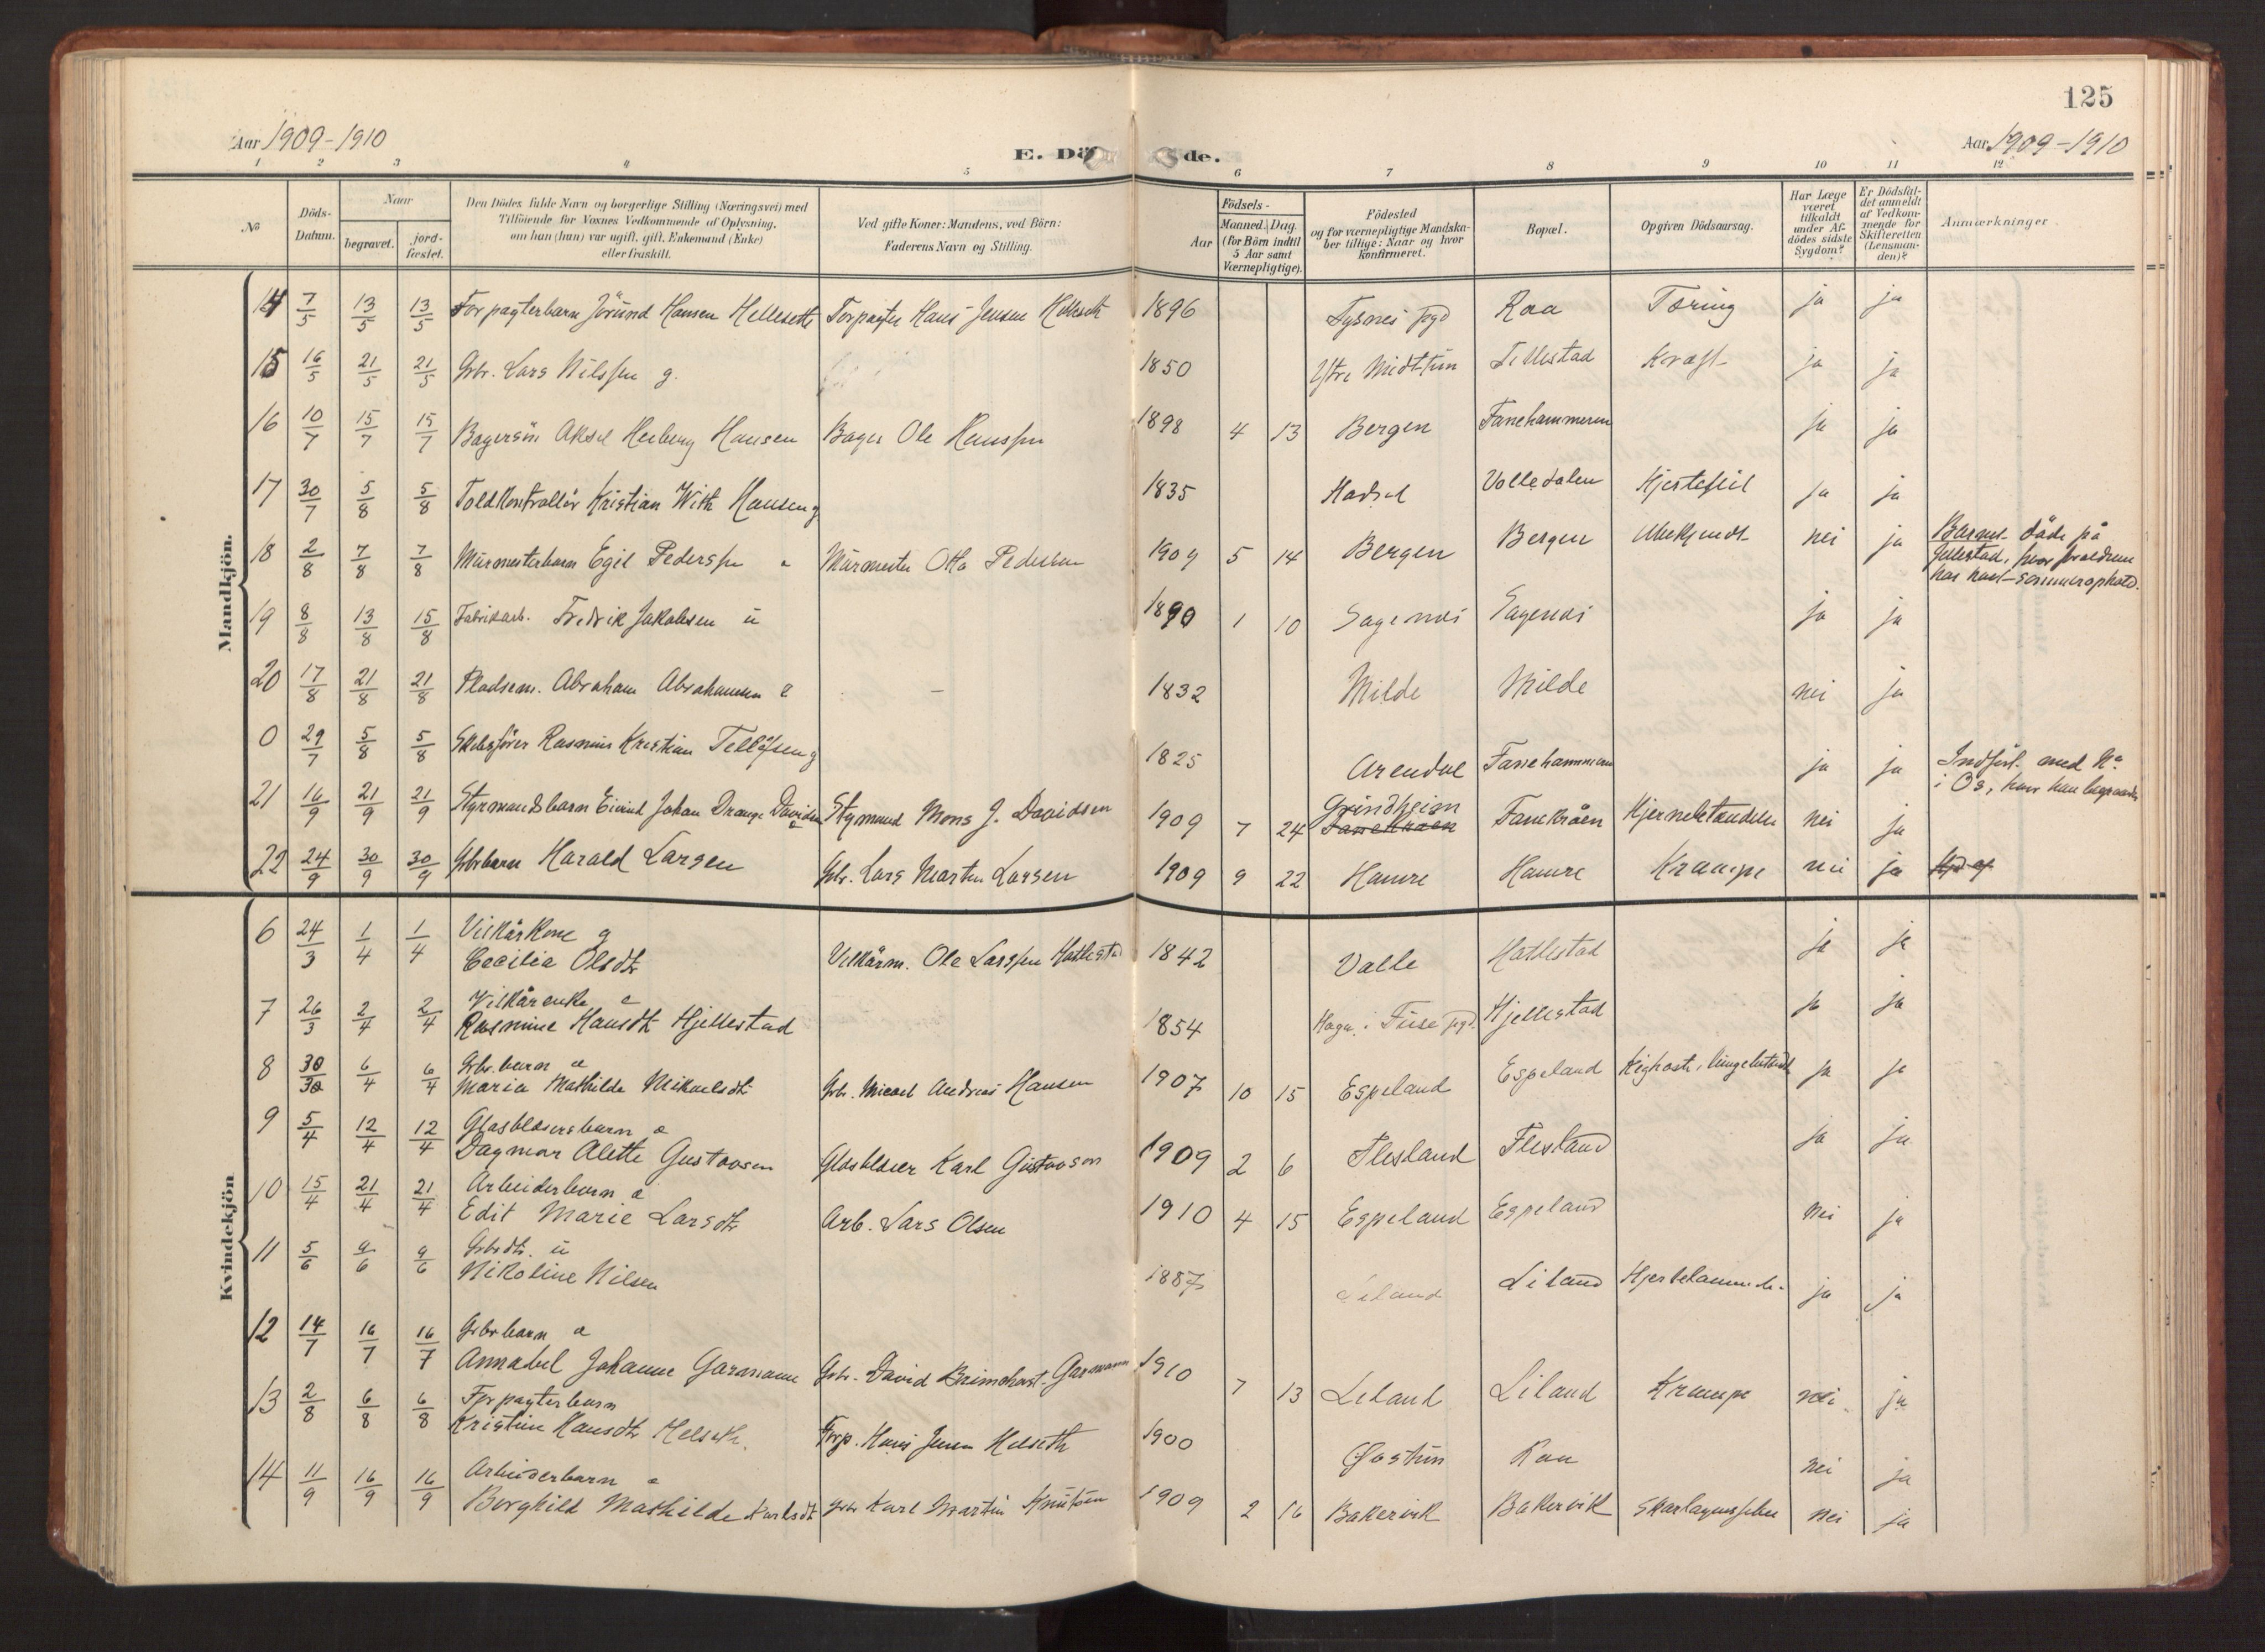 125
Aar 1909-1910
Aar 1909-1910
E. Dö de.
1 2 3 4 5 6 7 8 9 10 11 12
№
Döds-Datum.
Naar
begravet.
jord-fæstet.
Den Dödes fulde Navn og borgerlige Stilling (Næringsvei) med
Tilföiende for Voxnes Vedkommende af Oplysning,
om han (hun) var ugift, gift, Enkemand (Enke)
eller fraskilt.
Ved gifte Koner: Mandens, ved Börn:
Faderens Navn og Stilling.
Födsels-
Aar
Maaned. Dag.
(for Börn indtil
5 Aar samt
Værnepligtige).
Födested
og for værnepligtige Mandska-
ber tillige: Naar og hvor
konfirmeret.
Bopæl.
Opgiven Dödsaarsag.
Har Læge
været
tilkaldt
under Af-
dödes sidste
Sygdom?
Er Dödsfal-
det anmeldt
af Vedkom-
mende for
Skifteretten
(Lensman-
den)?
Anmærkninger
Mandkjön.
14 7/5 13/5 13/5 Forpagterbarn Jörund Hansen Helleseth Forpagter Hans Jensen Helleseth 1896 Tysnes pgd Raa Tæring ja ja
15 16/5 21/5 21/5 Gbr. Lars Nilssen g. 1850 Ystre Midttun Tillestad Kræft ja ja
16 10/7 15/7 15/7 Bagersön Aksel Herberg Hansen Bager Ole Hanssen 1898 4 13 Bergen Fanehammeren ja ja
17 30/7 5/8 5/8 Toldkontrollör Kristian With Hansen g 1835 Hadsel Volledalen Hjertefeil ja ja
18 2/8 7/8 7/8 Murmesterbarn Egil Pederssen Murmester Otto Pedersen 1909 5 14 Bergen Bergen Ubekjendt nei ja Barnet döde på
hvor foraldrene
har havt sommerophold.
19 8/8 13/8 15/8 Fabrikarb. Fredrik Jakobsen u 1890 1 10 Sagenæs Sagenæs ja ja
20 17/8 21/8 21/8 Pladsem. Abraham Abrahamsen e - 1832 Milde Milde nei ja
0 29/7 5/8 5/8 Skibsförer Rasmus Kristian Tellefsen g 1825 Arendal Fanehammeren ja ja Indfört med No
i Os, hvor han begravedes
21 16/9 21/9 21/9 Styrmandsbarn Eivind Johan Drange Davidsen Styrmand Mons J. Davidsen 1909 7 24 Grindheim Fanekråen Fanekråen Hjernebetændelse nei ja
22 24/9 30/9 30/9 Gbrbarn Harald Larsen Gbr. Lars Martin Larsen 1909 9 22 Hamre Hamre Krampe nei ja
Kvindekjön
6 24/3 1/4 1/4 Vilkårkone g
Cecilie Olsdtr Vilkårm. Ole Larssen Hatlestad 1842 Valle Hatlestad ja ja
7 26/3 2/4 2/4 Vilkårenke e
Rasmine Hansdtr Hjellestad 1854 Hagen i Fuse pgd. Hjellestad ja ja
8 30/30 6/4 6/4 Gbr. barn
Maria Mathilde Mikaelsdtr Gbr. Micael Andreas Hansen 1907 10 15 Espeland Espeland Kighoste, ja ja
9 5/4 12/4 12/4 Glasblæserbarn
Dagmar Alette Gustavsen Glasblæser Karl Gustavson 1909 2 6 Flesland Flesland ja ja
10 15/4 21/4 21/4 Arbeiderbarn
Edit Marie Larsdtr Arb. Lars Olsen 1910 4 15 Espeland Espeland nei ja
11 5/6 9/6 9/6 Gbrdtr. u
Nikoline Nilsen 1887 Liland Liland ja ja
12 14/7 16/7 16/7 Gbrbarn
Annabel Johanne Garmann Gbr. David Garmann 1910 7 13 Liland Liland Krampe nei ja
13 2/8 6/8 6/8 Forpagterbarn
Kristine Hansdtr Helseth. Forp. Hans Jensen Helseth 1900 Øostun Raa nei ja
14 11/9 16/9 16/9 Arbeiderbarn
Borghild Mathilde Karlsdtr Gbr Karl Martin Knutsen 1909 2 16 Bakervik Bakervik Skarlagensfeber nei ja